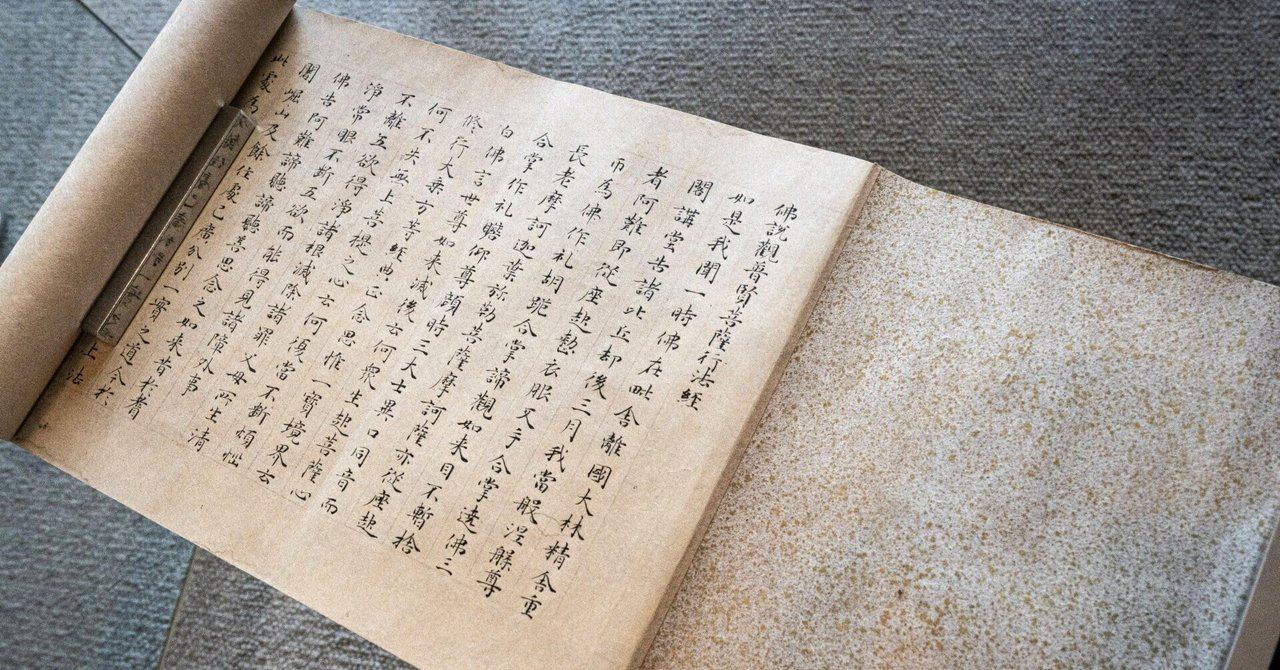 佛說觀普賢菩薩行法經
如是我聞一時佛在毗舍離國大林精舍重
閣講堂告諸比丘却後三月我當般涅槃尊
者阿難即從座起整衣服叉手合掌遶佛三
帀為佛作礼胡跪合掌諦觀如来目不暫捨
長老摩訶迦葉弥勒菩薩摩訶薩亦從座起
合掌作礼瞻仰尊顔時三大士異口同音而
白佛言世尊如来滅後云何衆生起菩薩心
修行大乘方等經典正念思惟一實境界云
何不失無上菩提之心云何復當不断煩惱
不離五欲得淨諸根滅除諸罪父母所生清
淨常眼不断五欲而能得見諸障外事
佛告阿難諦聽諦聽善思念之如来昔於耆
闍崛山及餘住處已廣分別一實之道今於
此處為